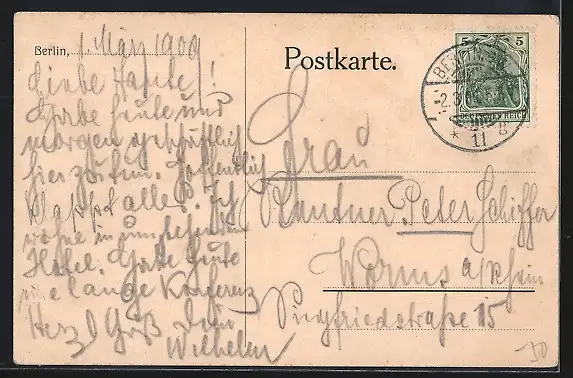 Berlin, 1 März 1909
Liebe Tante!
Habe heute und
morgen geschäftlich
hier zu tun. Hoffentlich
klappt alles. Ich
wohne in
Hotel. Habe heute
e lange Konferenz
Herzl Gruß Dein
Wilhelm
Postkarte.
Frau
Rentner Peter Schiffer
Worms a/Rhein
Siegfriedstraße 15
5 5
DEUTSCHES REICH
BERLIN
-2.3
* 11 g
50